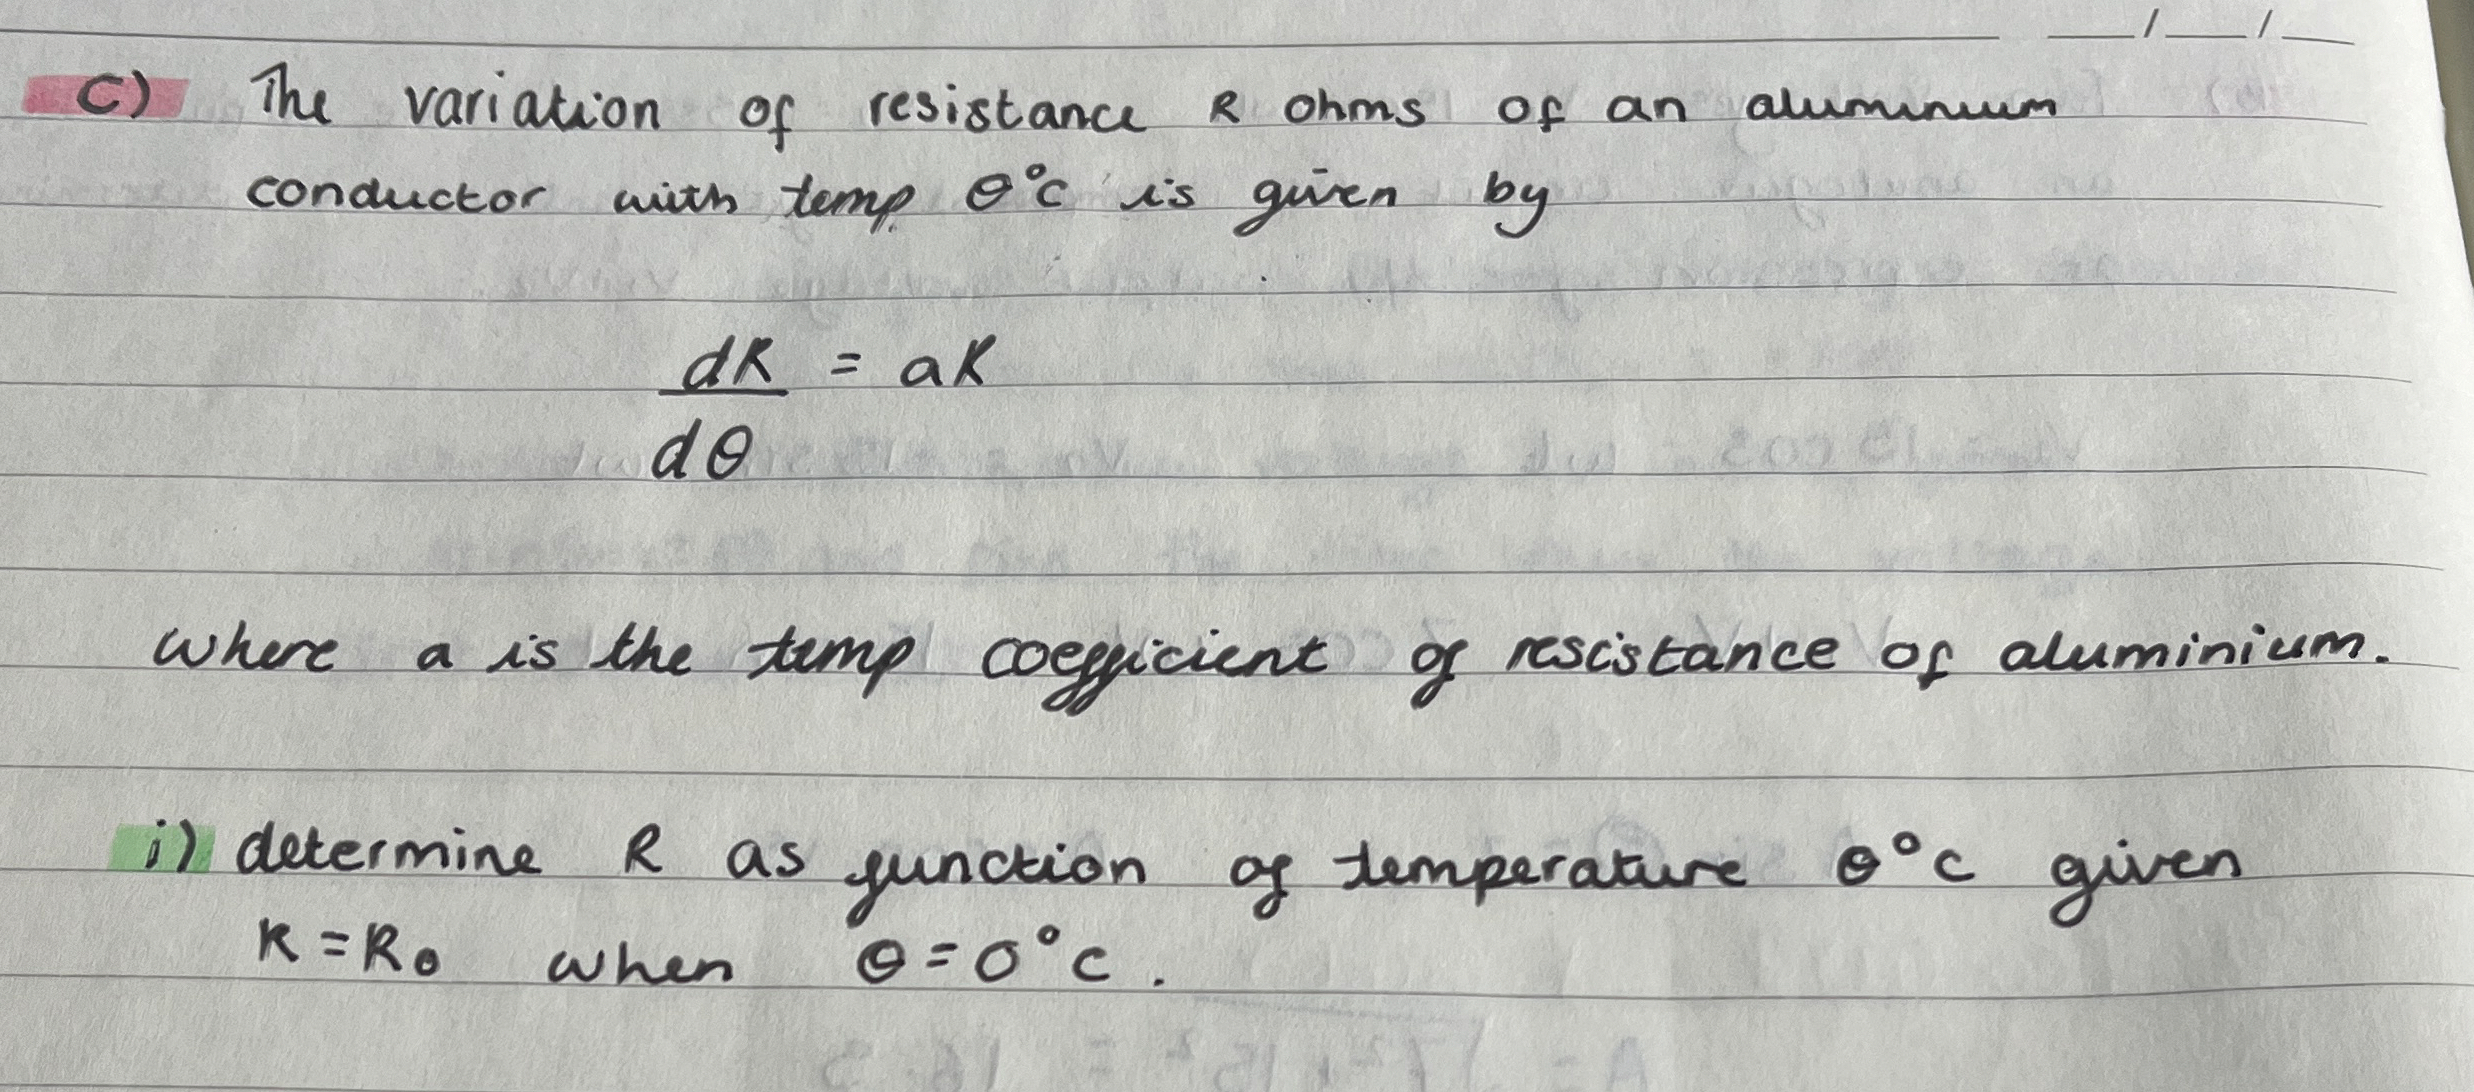 __/__/__
c) The variation of resistance R ohms of an aluminium
conductor with temp θ°c is given by
dR = aR
dθ
where a is the temp coefficient of rescistance of aluminium.
i) determine R as function of temperature θ°c given
R = R₀ when θ = 0°c.